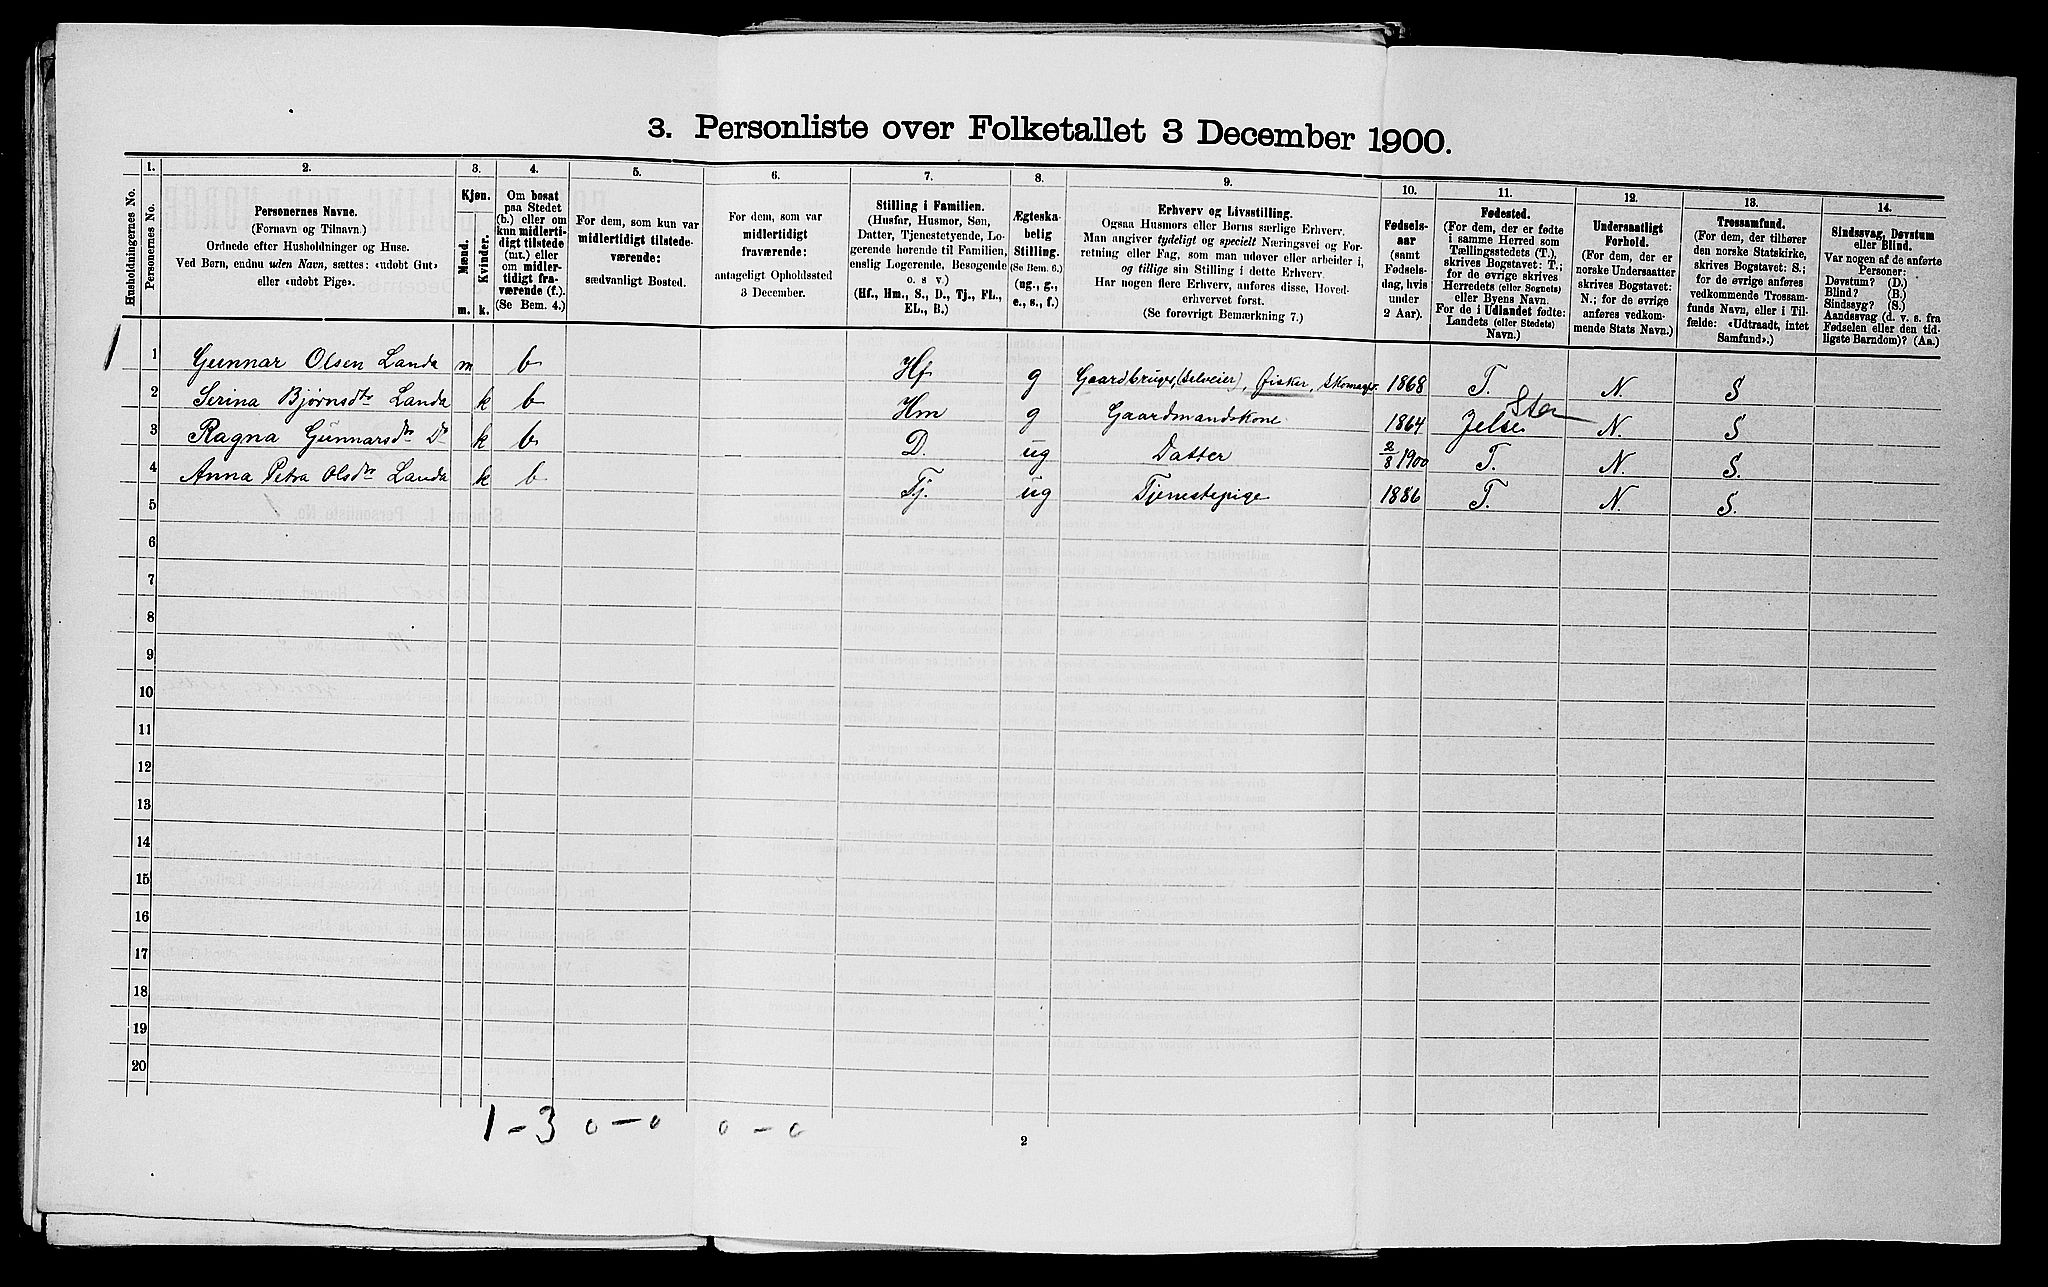 3. Personliste over Folketallet 3 December 1900.
Husholdningernes No.
1.
Personernes No.
2.
Personernes Navne.
(Fornavn og Tilnavn.)
Ordnede efter Husholdninger og Huse.
Ved Børn, endnu uden Navn, sættes: «udøbt Gut»
eller «udøbt Pige».
3.
Kjøn.
Mænd.
Kvinder.
m. k.
4.
Om bosat
paa Stedet
(b.) eller om
kun midlerti-
digt tilstede
(mt.) eller
om midler-
tidigt fra-
værende (f.).
(Se Bem. 4.)
5.
For dem, som kun var
midlertidigt tilstede-
værende:
sædvanligt Bosted.
6.
For dem, som var
midlertidigt
fraværende:
antageligt Opholdssted
3 December.
7.
Stilling i Familien.
(Husfar, Husmor, Søn,
Datter, Tjenestetyende, Lo-
gerende hørende til Familien,
enslig Logerende, Besøgende
o. s v.)
(Hf., Hm., S., D., Tj., FL.,
EL., B.)
8.
Ægteska-
belig
Stilling.
(Se Bem. 6.)
(ug., g.,
e., s., f.)
9.
Erhverv og Livsstilling.
Ogsaa Husmors eller Børns særlige Erhverv.
Man angiver tydeligt og specielt Næringsvei og For-
retning eller Fag, som man udøver eller arbeider i,
og tillige sin Stilling i dette Erhverv.
Har nogen flere Erhverv, anføres disse, Hoved-
erhvervet først.
(Se forøvrigt Bemærkning 7.)
10.
Fødsels-
aar
(samt
Fødsels-
dag, hvis
under
2 Aar).
11.
Fødested.
(For dem, der er fødte
i samme Herred som
Tællingsstedets (T.),
skrives Bogstavet: T.;
for de øvrige skrives
Herredets (eller Sognets)
eller Byens Navn.
For de i Udlandet fødte:
Landets (eller Stedets)
Navn.)
12.
Undersaatligt
Forhold.
(For dem, der er
norske Undersaatter
skrives Bogstavet:
N.; for de øvrige
anføres vedkom-
mende Stats Navn.)
13.
Trossamfund.
(For dem, der tilhører
den norske Statskirke,
skrives Bogstavet: S.;
for de øvrige anføres
vedkommende Trossam-
funds Navn, eller i Til-
fælde: «Udtraadt, intet
Samfund».)
14.
Sindssvag, Døvstum
eller Blind.
Var nogen af de anførte
Personer:
Døvstum? (D.)
Blind? (B.)
Sindssyg? (S.)
Aandssvag (d. v. s. fra
Fødselen eller den tid-
ligste Barndom)? (Aa.)
1 1 Gunnar Olsen Landa m b Hf g Gaardbruger, (selveier), Fisker, Skomager. 1868 T. N. S
2 Serina Bjørnsdtr Landa k b Hm g Gaardmandskone 1864 Jelse N. S
3 Ragna Gunnarsdtr Do k b D. ug Datter 2/8 1900 T. N. S.
4 Anna Petra Olsdtr Landa k b Tj. ug Tjenestepige 1886 T. N. S.
5
6
7
8
9
10
11
12
13
14
15
16
17
18
19
20
1 - 3 0 - 0 0 - 0
2